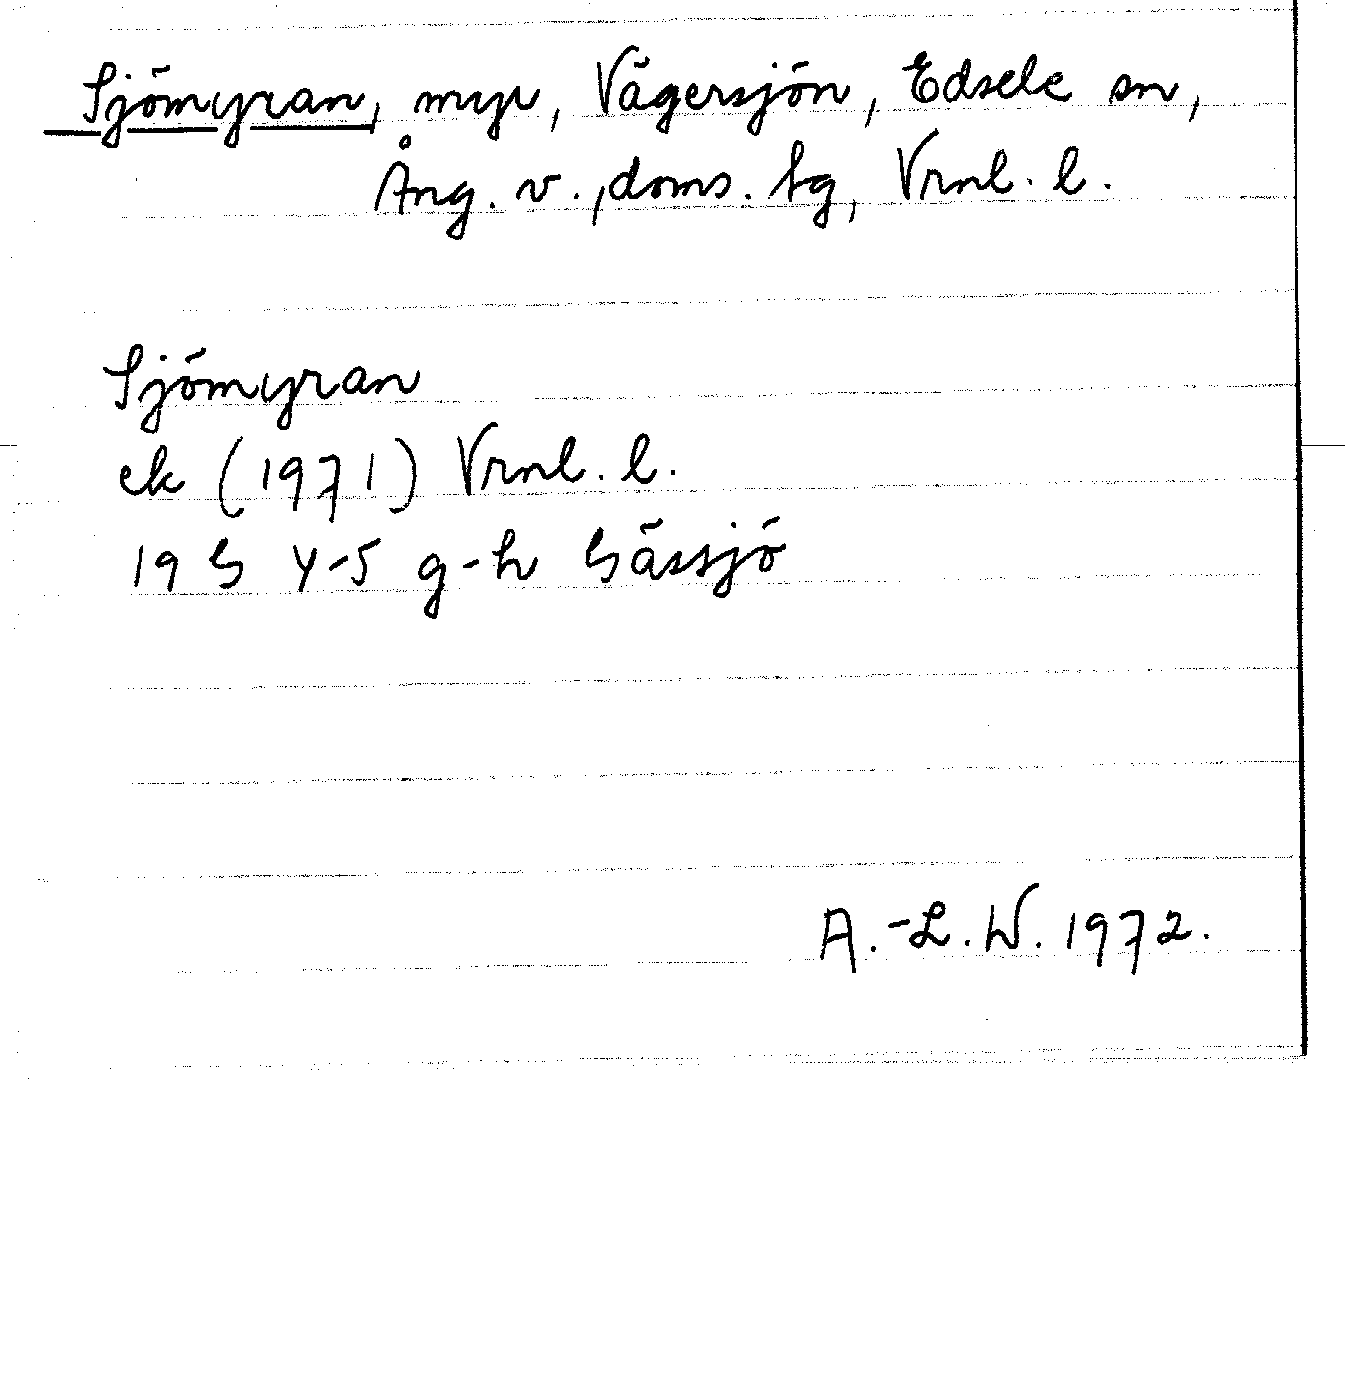 Sjömyran, myr, Vägersjön, Edsele sn,
Ång. v., doms. tg, Vrnl. l.
Sjömyran
ek (1971) Vrnl. l.
19 G 4-5 g-h Gässjö
A.-L.W. 1972.